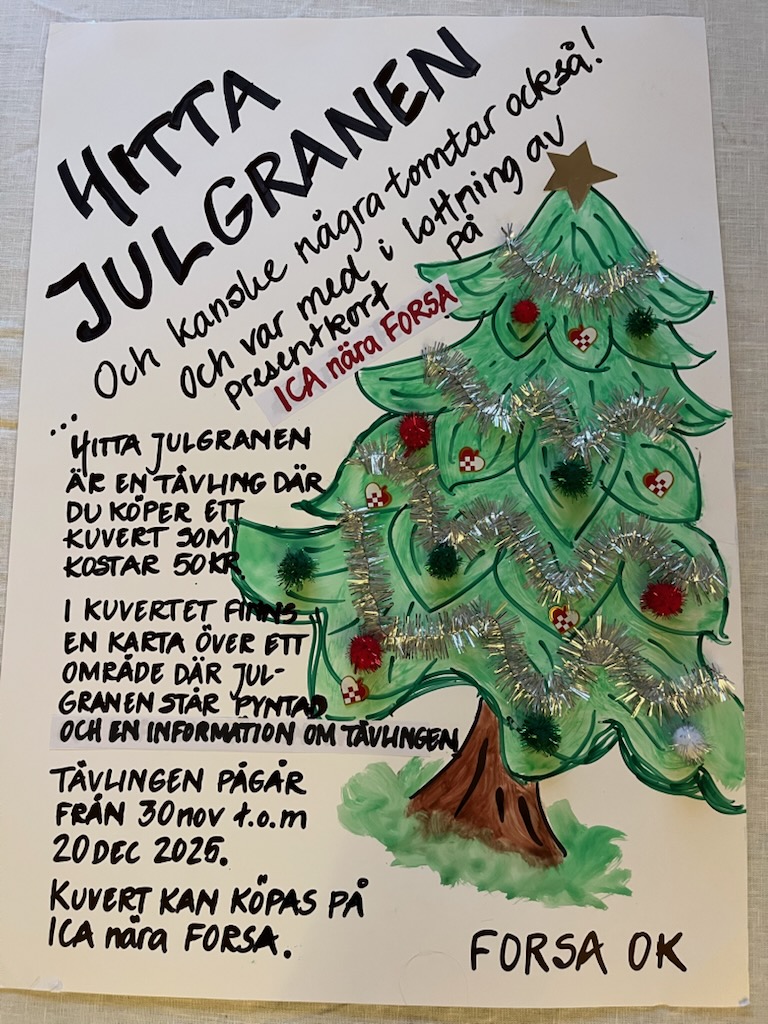 HITTA
JULGRANEN
Och kanske några tomtar också!
och var med i lottning av
presentkort på
ICA nära FORSA
...
HITTA JULGRANEN
ÄR EN TÄVLING DÄR
DU KÖPER ETT
KUVERT SOM
KOSTAR 50KR.
I KUVERTET FINNS
EN KARTA ÖVER ETT
OMRÅDE DÄR JUL-
GRANEN STÅR PYNTAD
OCH EN INFORMATION OM TÄVLINGEN.
TÄVLINGEN PÅGÅR
FRÅN 30 nov t.o.m
20 DEC 2025.
KUVERT KAN KÖPAS PÅ
ICA nära FORSA.
FORSA OK